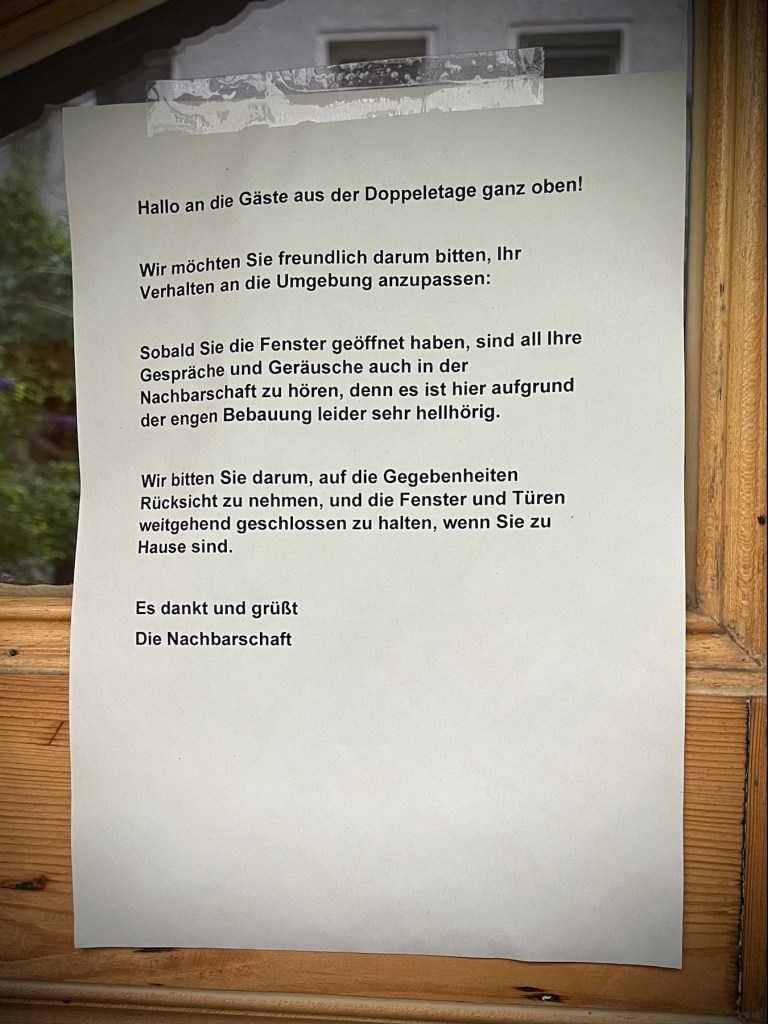 Hallo an die Gäste aus der Doppeletage ganz oben!
Wir möchten Sie freundlich darum bitten, Ihr
Verhalten an die Umgebung anzupassen:
Sobald Sie die Fenster geöffnet haben, sind all Ihre
Gespräche und Geräusche auch in der
Nachbarschaft zu hören, denn es ist hier aufgrund
der engen Bebauung leider sehr hellhörig.
Wir bitten Sie darum, auf die Gegebenheiten
Rücksicht zu nehmen, und die Fenster und Türen
weitgehend geschlossen zu halten, wenn Sie zu
Hause sind.
Es dankt und grüßt
Die Nachbarschaft